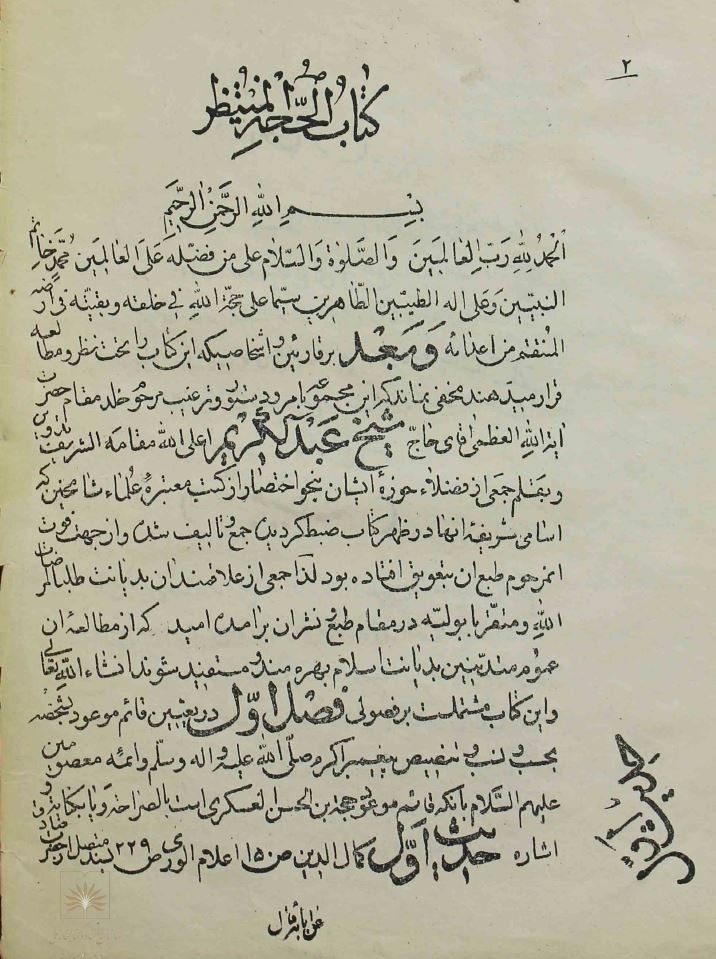 ٢
كتاب الحجة المنتظر
بسم الله الرحمن الرحيم
الحمد لله رب العالمين والصلوة والسلام على من فضله على العالمين محمد خاتم
النبيين وعلى اله الطيبين الطاهرين سيما على حجة الله في خلقه وبقيته في ارضه
المنتقم من اعدائه وبعد برقارئین واشخاصیکه این کتاب را تحت نظر ومطالعه
قرار میدهند مخفی نماند که این مجموعه بامر ودستور وترغیب مرحوم خلد مقام حضرت
ایة الله العظمی اقای حاج شیخ عبدالکریم اعلی الله مقامه الشریف
وبقلم جمعی از فضلاء حوزۀ ایشان بنحو اختصار از کتب معتبرۀ علماء شامخین که
اسامی شریفۀ انها در ظهر کتاب ضبط گردیده جمع وتالیف شده واز جهت فوت
انمرحوم طبع ان بتعویق افتاده بود لذا جمعی از علاقمندان بدیانت طلبا لمرضات
الله ومتقربا بولیه در مقام طبع ونشران برامده امید که از مطالعۀ ان
عموم متدینین بدیانت اسلام بهره مند ومستفید شوند انشاء الله تعالی
واین کتاب مشتملست برفصولی فصل اول در تعیین قائم موعود بشخصه
بحسب ونسب وتنصیص پیغمبر اکرم صلی الله علیه واله وسلم وائمه معصومین
علیهم السلام بانکه قائم موعود حجة بن الحسن العسکری است بالصراحة ویا بکنایه و
اشاره حدیث اول کمال الدین ص ١٥٠ اعلام الوری ص ٢٢٩ بسند متصل از حضرت صادق
عن ابائه قال